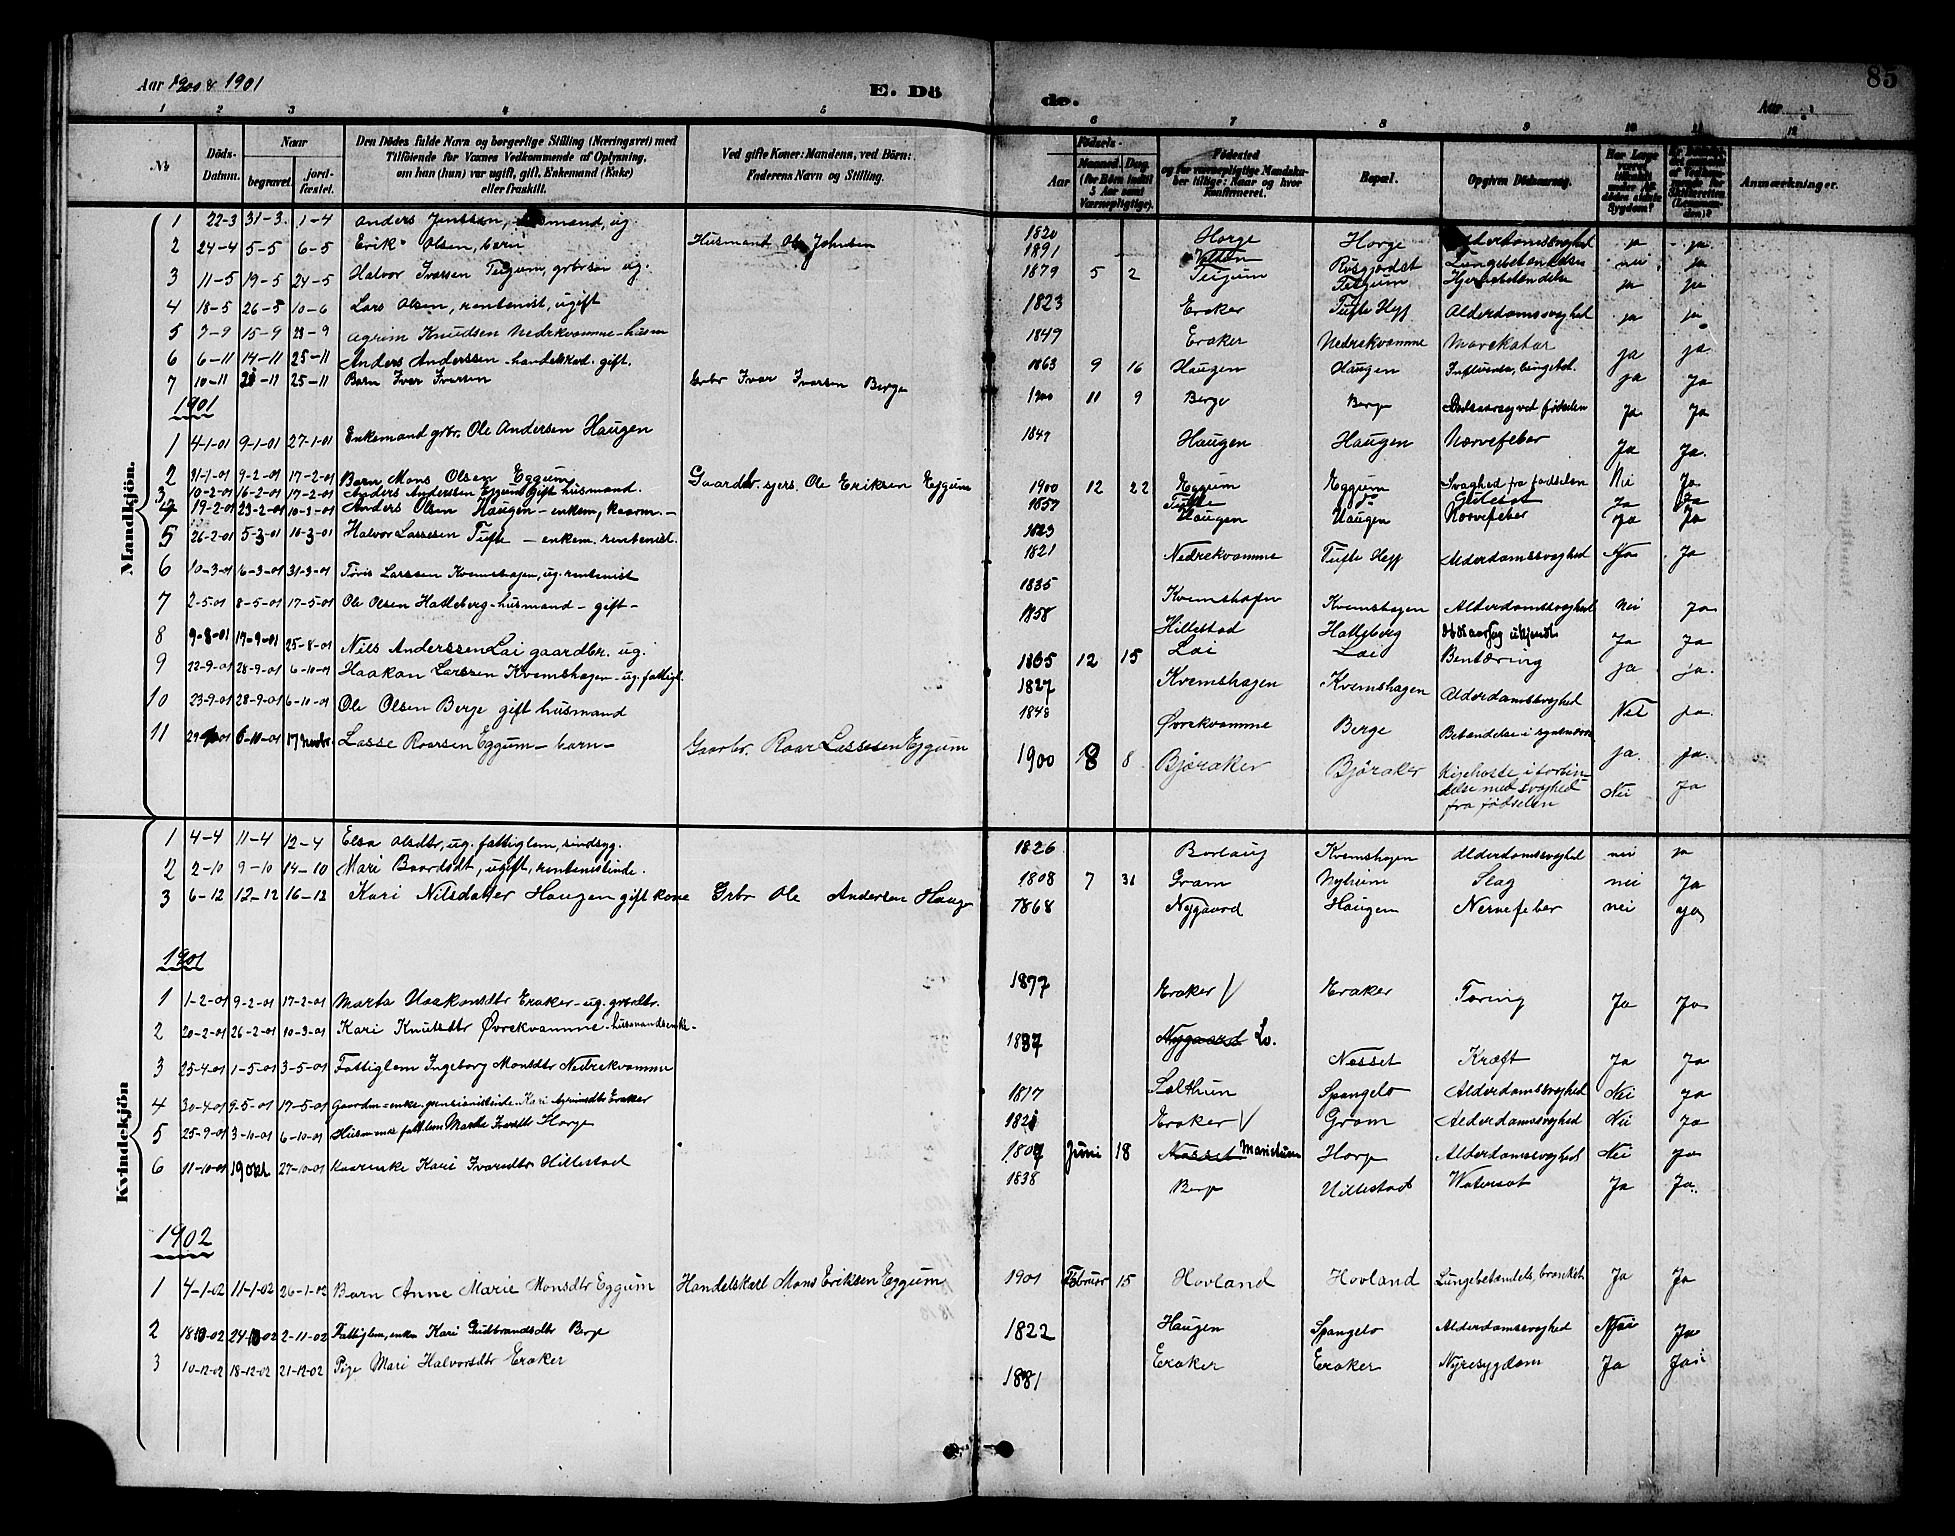 Aar 1900 & 1901
E. Dö
de.
Aar
85
1 2 3 4 5
6 7 8 9 10 11 12
№
Döds-Datum.
Naar
begravet.
jord-fæstet.
Den Dödes fulde Navn og borgerlige Stilling (Næringsvei) med
Tilföiende for Voxnes Vedkommende af Oplysning,
om han (hun) var ugift, gift, Enkemand (Enke)
eller fraskilt.
Ved gifte Koner: Mandens, ved Börn:
Faderens Navn og Stilling.
Födsels-
Aar
Maaned. Dag.
(for Börn indtil
5 Aar samt
Værnepligtige).
Födested
og for værnepligtige Mandska-
ber tillige: Naar og hvor
konfirmeret.
Bopæl.
Opgiven Dödsaarsag.
Har Læge
været
tilkaldt
under Af-
dödes sidste
Sygdom?
Anmærkninger.
Mandkjön.
1 22-3 31-3. 1-4 Anders Jenssen, husmand, ug. 1820 Horge Horge Alderdomssvaghed ja ja
2 24-4 5-5 6-5 Erik Olsen, barn Husmand Ole Johnsen 1891 Lungebetændelse nei ja
3 11-5 19-5 24-5 Halvor Ivarsen Teigum, grbrsön ug. 1879 5 2 Teigum Teigum ja ja
4 18-5 26-5 10-6 Lars Olsen, rentenist, ugift 1823 Eraker Tufte Hegg Alderdomssvaghed ja ja
5 7-9 15-9 23-9 Agrim Knudsen Nedrekvamme-husm 1849 Eraker Nedrekvamme Mavekatar ja ja.
6 6-11 14-11 25-11 Anders Anderssen-handelskad. gift. 1863 9 16 Haugen Haugen Influenza, lungebet. ja ja
7 10-11 21-11 25-11 Barn Iver Ivarsen Grbr Ivar Ivarsen Berge 1900 11 9 Berge Berge Dødsaarsag ved födselen Ja Ja
1901
1 4-1-01 9-1-01 27-1-01 Enkemand grbr. Ole Andersen Haugen 1849 Haugen Haugen Nervefeber Ja Ja.
2 31-1-01 9-2-01 17-2-01 Barn Mons Olsen Eggum Gaardbr. sjers. Ole Eriksen Eggum 1900 12 22 Eggum Eggum Svaghed fra fødselen Nei Ja
3 10-2-01 16-2-01 17-2-01 Anders Anderssen Eggum Gift husmand. 1857 Tufte do Ja Ja
4 19-2-01 23-2-01 10-3-01 Anders Olsen Haugen - enkem, kaarm. - 1823 Haugen Haugen Nervefeber Ja Ja
5 26-2-01 5-3-01 10-3-01 Halvor Lassesen Tufte - enkem. rentenist. 1821 Nedrekvamme Tufte Hegg Alderdomssvaghed Ja Ja
6 10-3-01 16-3-01 31-3-01 Tøris Larssen Kvemshagen, ug. rentenist 1835 Kvemshagen Kvemshagen Alderdomssvaghed Nei Ja
7 2-5-01 8-5-01 17-5-01 Ole Olsen Hatleberg-husmand - gift - 1858 Hillestad Hatleberg Dødsaarsag ukjendt Ja Ja
8 9-8-01 17-9-01 25-8-01 Nils Anderssen Lai gaardbr. ug. 1865 12 15 Lai Lai Bentæring ja ja.
9 22-9-01 28-9-01 6-10-01 Haakon Larssen Kvemshagen - ug. fattigl. 1827 Kvemshagen Kvemshagen Alderdomssvaghed Nei ja.
10 23-9-01 28-9-01 6-10-01 Ole Olsen Berge gift husmand 1848 Øvrekvamme Berge ja. ja.
11 6-10-01 17 novbr. Lasse Roarsen Eggum - barn - Gaarbr. Roar Lassesen Eggum 1900 8 8 Björaker Björaker Kighoste i forbin-
delse med svaghed
fra födselen Nei Ja
Kvindekjön
1 4-4 11-4 12-4 Elsa Olsdtr, ug. fattiglem, sindsyg. 1826 Borlaug Kvemshagen Alderdomssvaghed nei ja
2 2-10 9-10 14-10 Mari Baardsdt, ugift, rentenistinde. 1808 7 31 Gram Nyheim Slag nei Ja
3 6-12 12-12 16-12 Kari Nilsdatter Haugen gift kone Grbr Ole Andersen Hauge 1868 Nygaard Haugen Nervefeber nei ja
1901
1 1-2-01 9-2-01 17-2-01 Marta Haakonsdtr Eraker - ug. grbrdtr. 1877 Eraker √ Eraker Tæring Ja Ja
2 20-2-01 26-2-01 10-3-01 Kari Knutsdtr Øvrekvamme - husmandsenke - 1837 Nygaard Lo. Nesset Kræft Ja Ja
3 25-4-01 1-5-01 3-5-01 Fattiglem Ingeborg Monsdtr Nedrekvamme 1817 Salthun Spangelo Alderdomssvaghed Nei Ja
4 30-4-01 9-5-01 17-5-01 Gaardm-enke-pensionistinde. Kari Agrimdtr Eraker 1821 Eraker √ Gram Alderdomssvaghed Nei Ja
5 25-9-01 3-10-01 6-10-01 Marta Horge 1807 Juni 18 Nesset Maristuen Horge Alderdomssvaghed Nei ja
6 11-10-01 19 okt 27-10-01 Kaarenke Kari Ivarsdtr Hillestad 1838 Berge Hillestad Watersot Ja Ja.
1902
1 4-1-02 11-1-02 26-1-02 Barn Anne Marie Monsdtr Eggum Handelskarl Mons Eriksen Eggum 1901 Februar 15 Hovland Hovland Lungebetændels, bronkit Ja Ja
2 18 10-02 24 10 02 2-11-02 Fattiglem, enke Kari Gudbrandsdtr Berge 1822 Haugen Spangelo Alderdomssvaghed Nei Ja
3 10-12-02 18-12-02 21-12-02 Pige Mari Halvorsdtr Eraker 1881 Eraker Eraker Nyresygdom Ja Ja